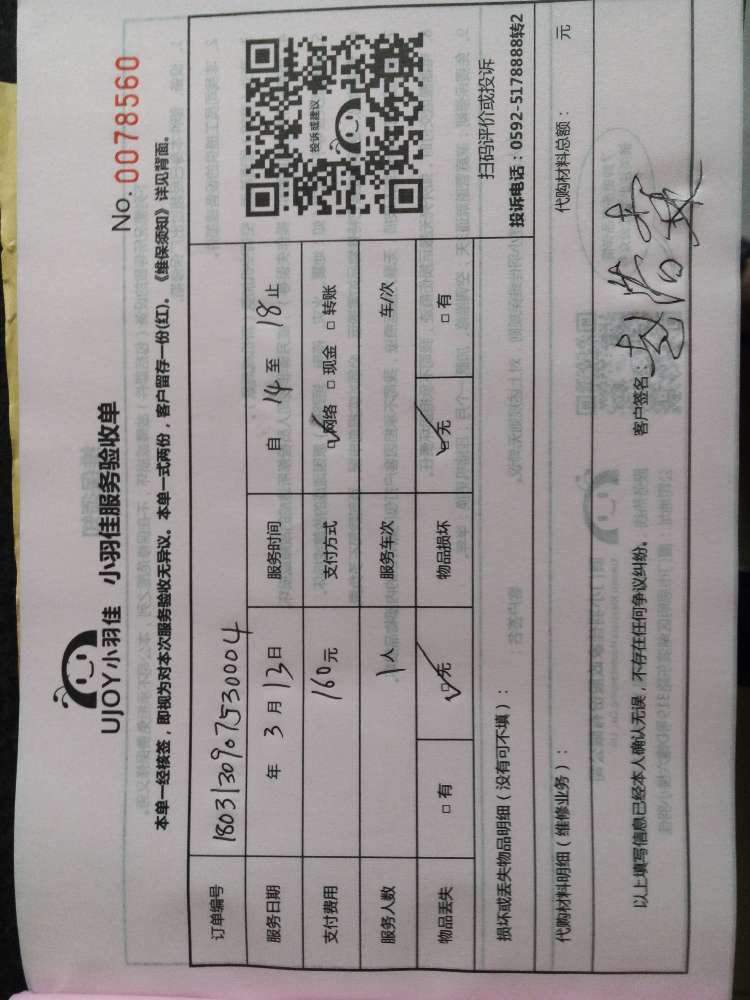 UJOY小羽佳 小羽佳服务验收单
No. 0078560
本单一经核签，即视为对本次服务验收无异议。本单一式两份，客户留存一份(红)。《维保须知》详见背面。
订单编号 1803130907530004
服务日期 年 3 月 13 日 服务时间 自 14 至 18 止
支付费用 160 元 支付方式 ☑网络 □现金 □转账
服务人数 1 人 服务车次 车/次
物品丢失 □有 ☑无 物品损坏 ☑无 □有
投诉或建议
扫码评价或投诉
投诉电话：0592-5178888转2
损坏或丢失物品明细（没有可不填）：
代购材料明细（维修业务）： 代购材料总额： 元
以上填写信息已经本人确认无误，不存在任何争议纠纷。 客户签名：